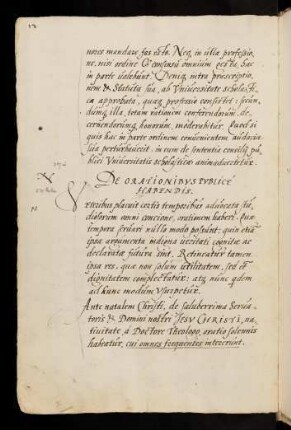 nores mandare fas esto. Neq; in illa professio,
ne, nisi ordine & consensu omnium certa, hac
in parte
nem & Statuta sua, ab Universitate scholasti,
ca approbata, quaq; professio consistet: secun,
dumq; illa, totam rationem conferendorum, de,
cernendorumq; honorum, moderabitur. Quod si
quis hac in parte ordinem consuetum audacius
perturbaverit, in eum de sententia consilij pu,
blici Universitatis scholasticæ animadvertetur.
DE ORATIONIBUS PUBLICE
HABENDIS.
Veteribus placuit certis temporibus advocata stu,
diosorum omni concione, orationem haberi. Quæ
tempora servari nullo modo possunt: quin etiam
ipsa argumenta
declarata sint. Retineatur tamen
ipsa res, quæ non solum utilitatem, sed etiam
dignitatem complectatur: atq; nunc quidem
ad hunc modum usurpetur.
Ante natalem Christi, de saluberrima Servato,
toris & Domini nostri IESV CHRISTI, na,
tivitate, à Doctore Theologo, oratio solennis
habeatur, cui omnes frequentes intersunt.